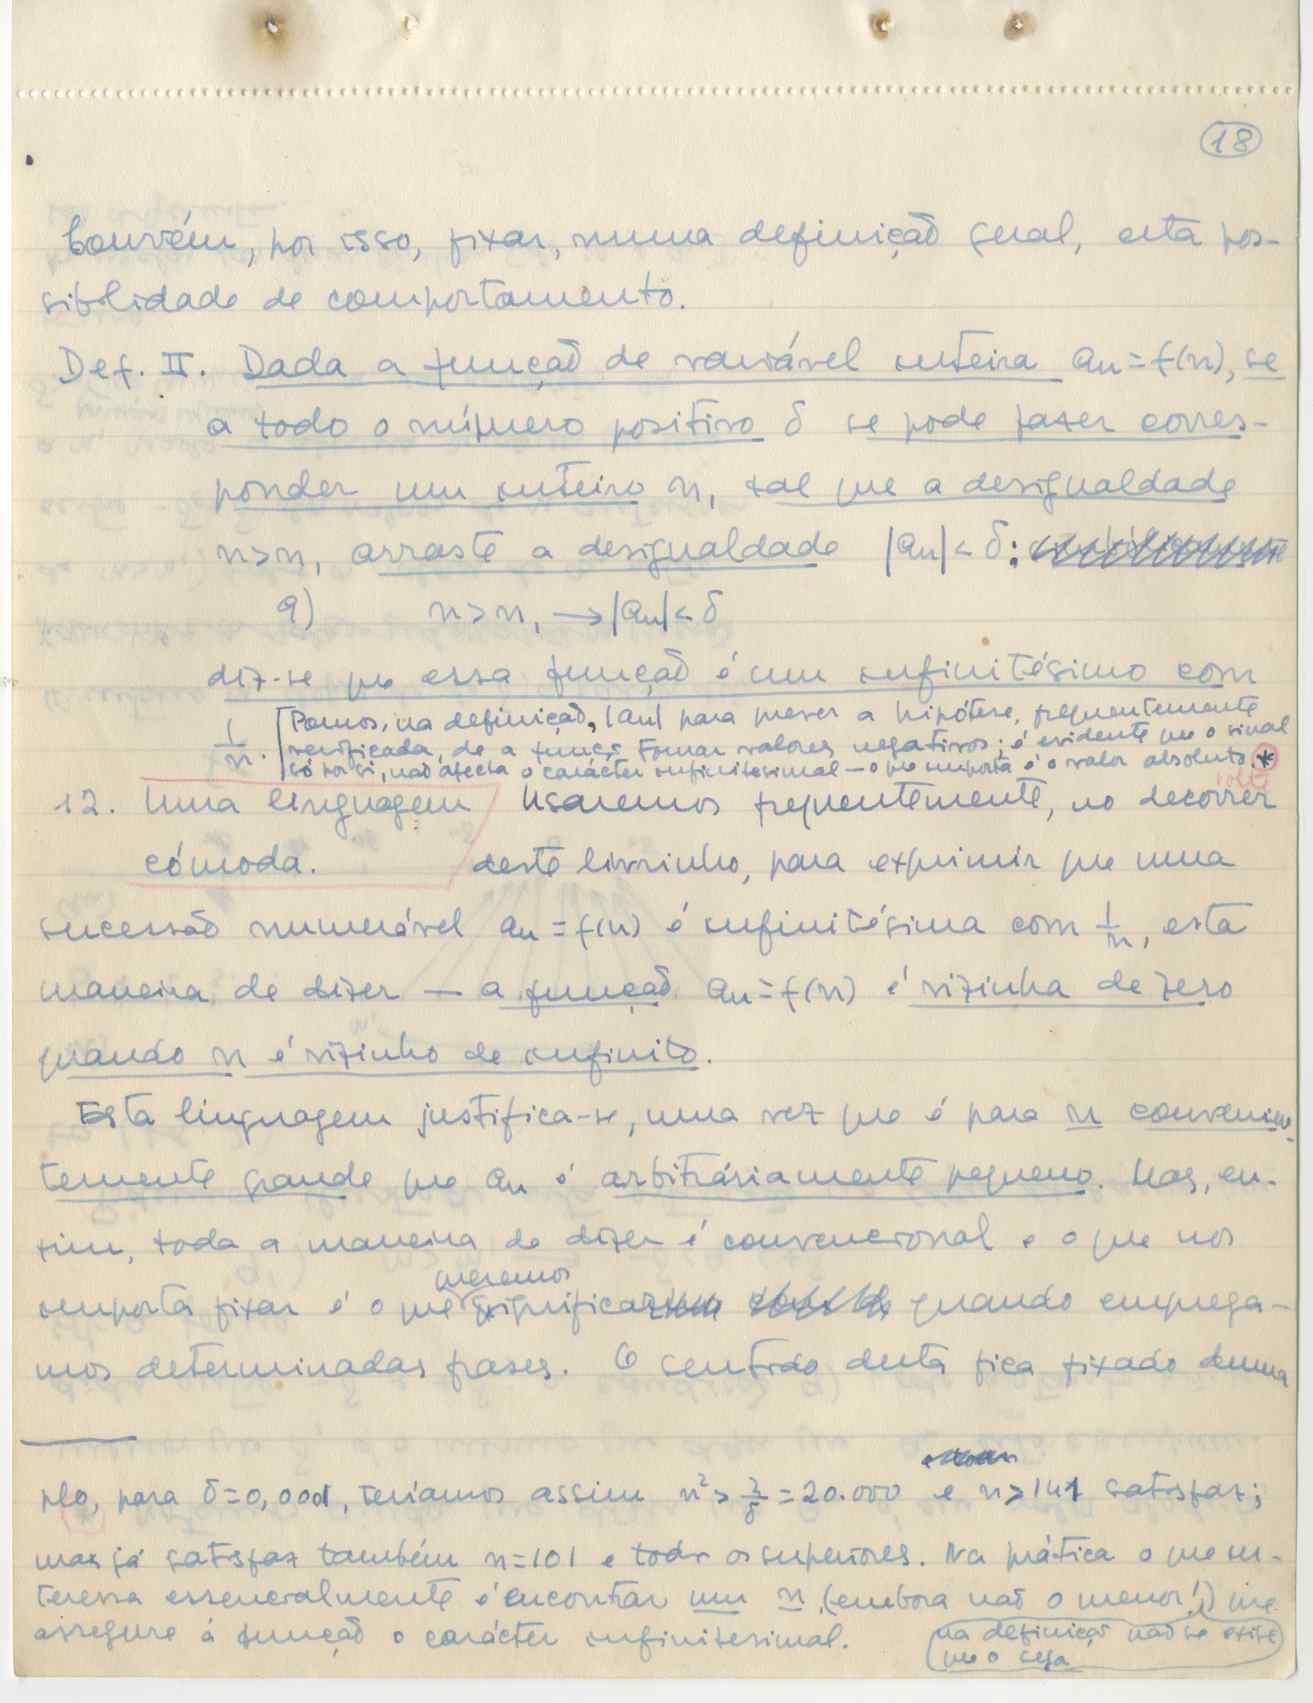 18
Convém, por isso, fixar, numa definição geral, esta pos-
sibilidade de comportamento.
Def. II. Dada a função de variável inteira an = f(n), se
a todo o número positivo δ se pode fazer corres-
ponder um inteiro n₁ tal que a desigualdade
n>n₁ arraste a desigualdade |an| < δ:
9) n>n₁ → |an| < δ
diz-se que essa função é um infinitésimo com
1/n. [Pomos, na definição, |an| para prever a hipótese, frequentemente
verificada, de a função tomar valores negativos; é evidente que o sinal
só por si, não afecta o carácter infinitesimal — o que importa é o valor absoluto *
volta
12. Uma linguagem Usaremos frequentemente, no decorrer
cómoda. deste livrinho, para exprimir que uma
sucessão numerável an = f(n) é infinitésima com 1/n, esta
maneira de dizer — a função an = f(n) é vizinha de zero
quando n é vizinho de infinito.
Esta linguagem justifica-se, uma vez que é para n convenien-
temente grande que an é arbitráriamente pequeno. Mas, en-
fim, toda a maneira de dizer é convencional e o que nos
queremos
importa fixar é o que significar quando emprega-
mos determinadas frases. O sentido desta fica fixado duma
plo, para δ=0,0001, teríamos assim n² > 2/δ = 20.000 e n > 141 satisfaz;
mas já satisfaz também n=101 e todos os superiores. Na prática o que in-
teressa essencialmente é encontrar um n₁ (embora não o menor!) que
assegure à função o carácter infinitesimal.
na definição não se exige
que o seja